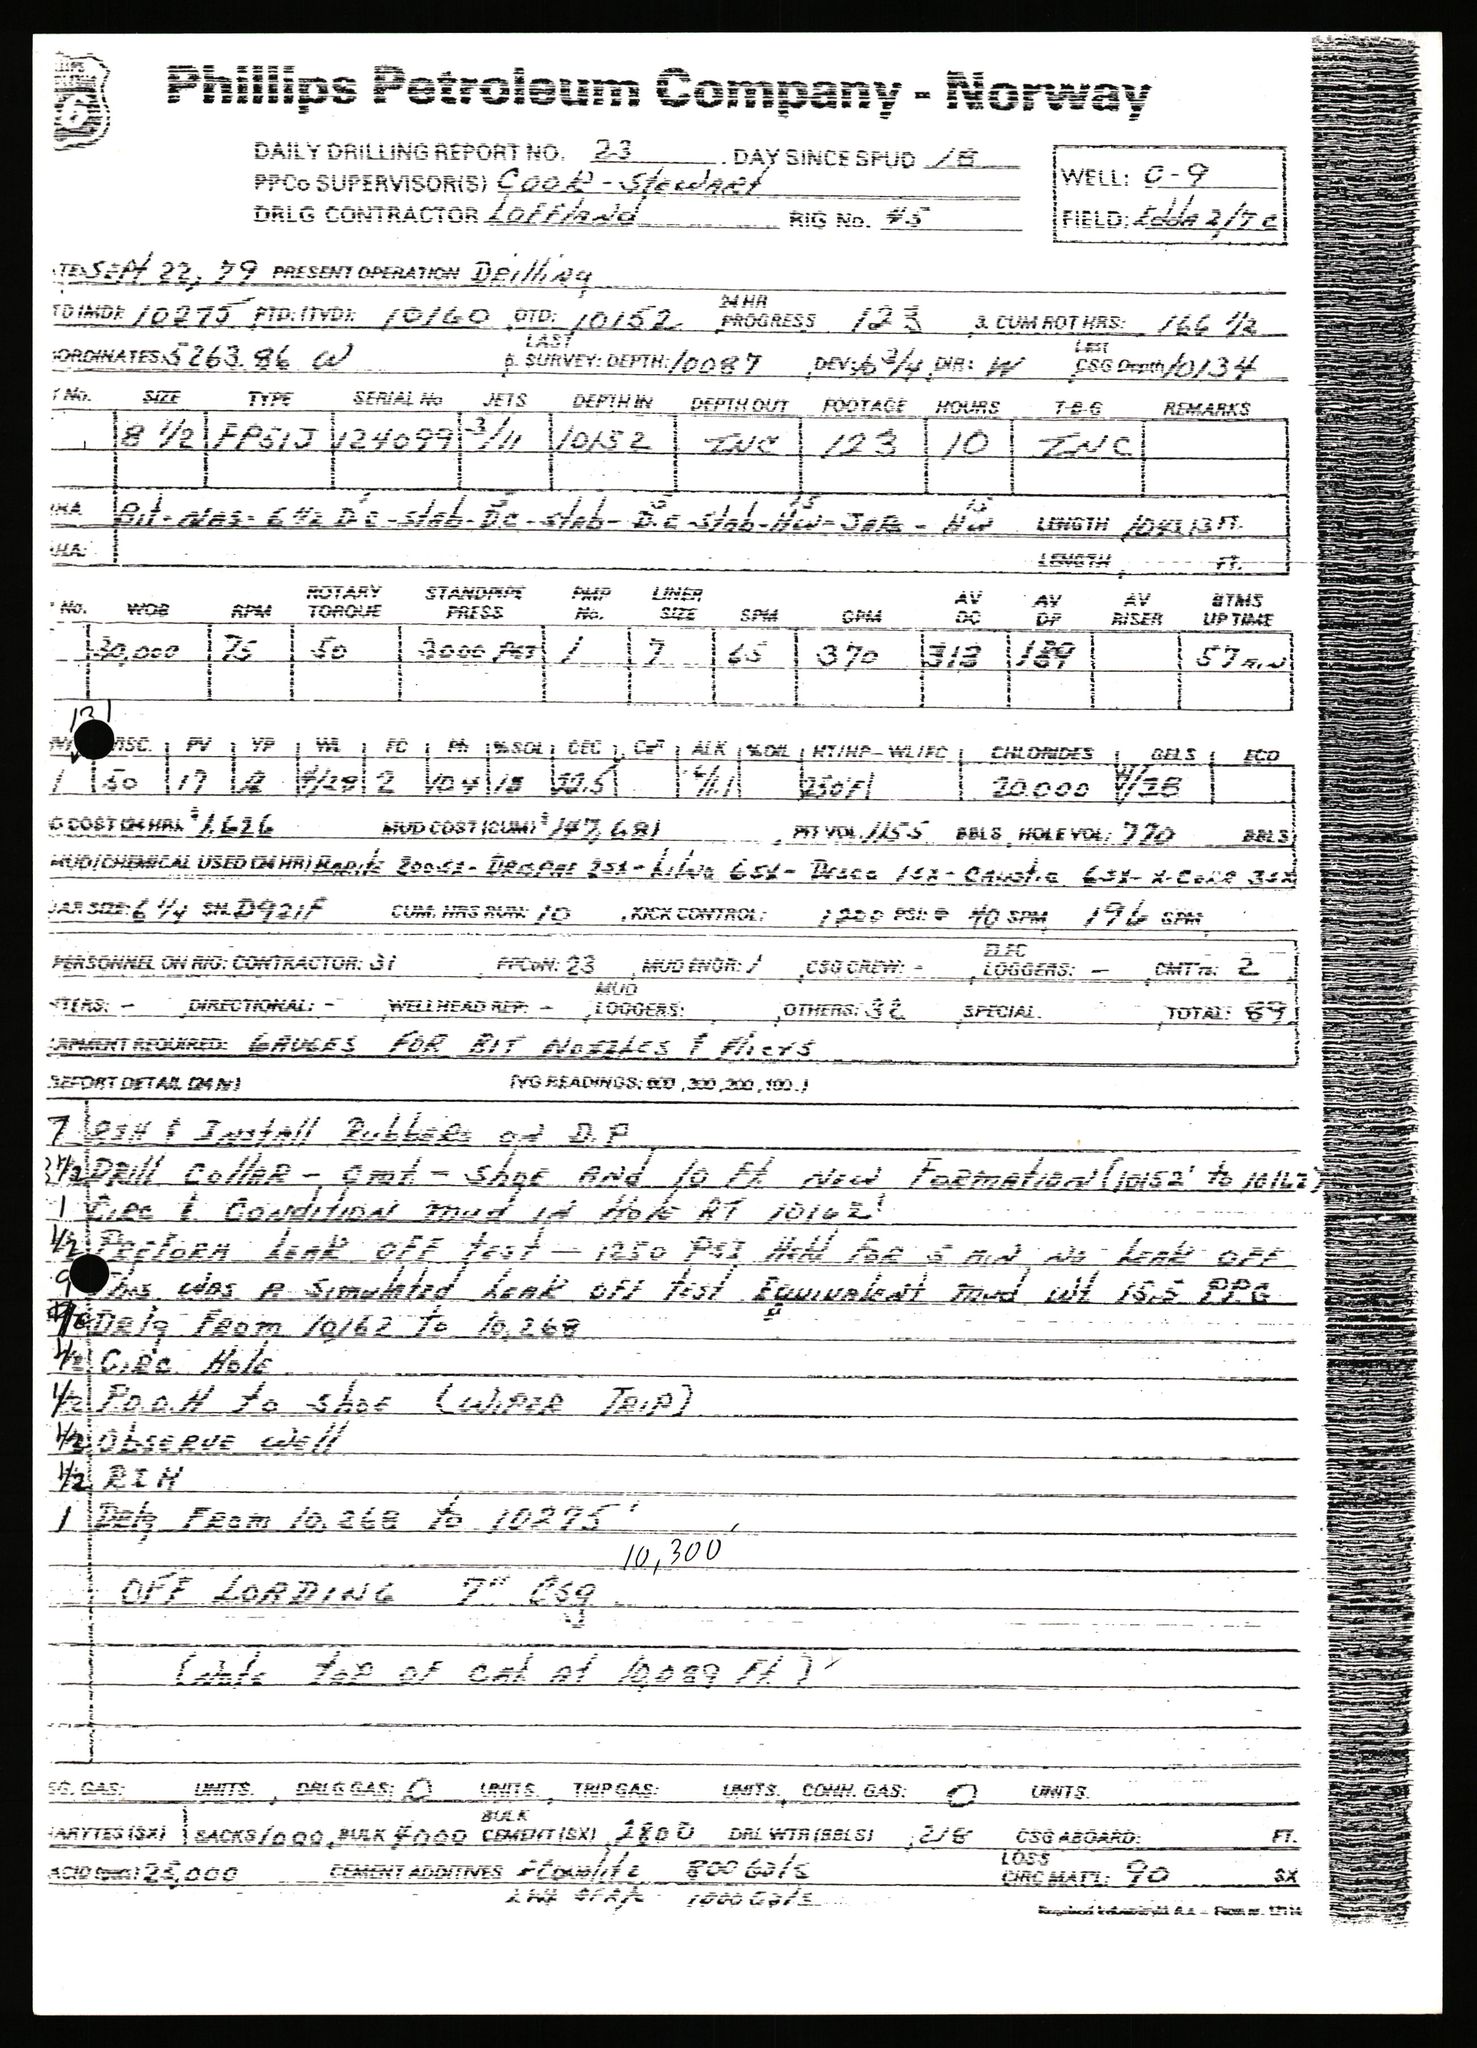 66
Phillips Petroleum Company - Norway
DAILY DRILLING REPORT NO. 23 . DAY SINCE SPUD 18
PPCo SUPERVISOR(S) Cook - Stewart
DRLG CONTRACTOR Loffland RIG No. 45
WELL: C-9
FIELD: Edda 2/7 C
Sept 22, 79 PRESENT OPERATION Drilling
10275 PTD: (TVD): 10160 OTD: 10152 24 HR PROGRESS 123 3. CUM ROT HRS: 166 1/2
ORDINATES: 5263.86 W LAST SURVEY: DEPTH: 10087 DEV: 6 3/4 DIR: W Last CSG Depth 10134
No. SIZE TYPE SERIAL No JETS DEPTH IN DEPTH OUT FOOTAGE HOURS T-B-G REMARKS
8 1/2 FP51J 124099 3/11 10152 INC 123 10 INC
Bit - NBS - 6 1/2 DC - Stab - DC - Stab - DC - Stab - HW - JARS - HW LENGTH 1043.13 FT.
LENGTH FT.
No. WOB RPM ROTARY TORQUE STANDPIPE PRESS PMP No. LINER SIZE SPM GPM AV DC AV DP AV RISER BTMS UP TIME
30,000 75 50 3000 PSI 1 7 65 370 313 189 57 min
131
VISC. PV YP WL FC PH %SOL CEC Ca ALK %OIL HT/HP - WL/FC CHLORIDES BELS ECD
50 17 2 10.4 18 22.5 250°F 20.000
COST (24 HR). $1,626 MUD COST (CUM) $147,681 PIT VOL: 1155 BBLS HOLE VOL: 770 BBLS
MUD/CHEMICAL USED (24 HR) Barite 200sx - Drispac 2sx - Lilng 6sx - Desco 1sx - Caustic 6sx - X-Cor 3sx
JAR SIZE: 6 1/4 SN. D921F CUM. HRS RUN: 10 KICK CONTROL: 1200 PSI @ 40 SPM 196 GPM
PERSONNEL ON RIG: CONTRACTOR: 31 PPCoN: 23 MUD ENGR: 1 CSG CREW: - ELEC LOGGERS: - CMT'rs: 2
DIRECTIONAL: - WELLHEAD REP: - MUD LOGGERS: OTHERS: 32 SPECIAL TOTAL: 89
EQUIPMENT REQUIRED: GAUGES FOR BIT NOZZLES & Pliers
REPORT DETAIL (24 Hr) (VG READINGS: 600, 300, 200, 100.)
7 RIH & Install Rubbers on D.P
3 1/2 Drill Collar - Cmt - Shoe and 10 Ft. New Formation (10152' to 10162)
1 Circ & Condition mud in Hole at 10162'
1/2 Perform Leak off test - 1250 PSI Held for 5 min no leak off
This was a simulated leak off test Equivalent mud wt 15.5 PPG
9 Drlg From 10,162 to 10,268
1/2 Circ Hole
1/2 P.O.O.H to shoe (WIPER TRIP)
1/2 Observe well
1/2 RIH
1 Drlg From 10,268 to 10275'
10,300'
OFF LOADING 7" Csg
(Note top of cmt at 10,089 Ft.)
GAS: UNITS. DRLG GAS: 0 UNITS. TRIP GAS: UNITS. CONN. GAS: 0 UNITS.
BARYTES (SX) SACKS 1000, BULK 4000 BULK CEMENT (SX) 2800 DRL WTR (BBLS) 218 CSG ABOARD: FT.
ACID 25,000 CEMENT ADDITIVES 800 Gals LOSS CIRC MAT'L: 90 SX
1000 Gals